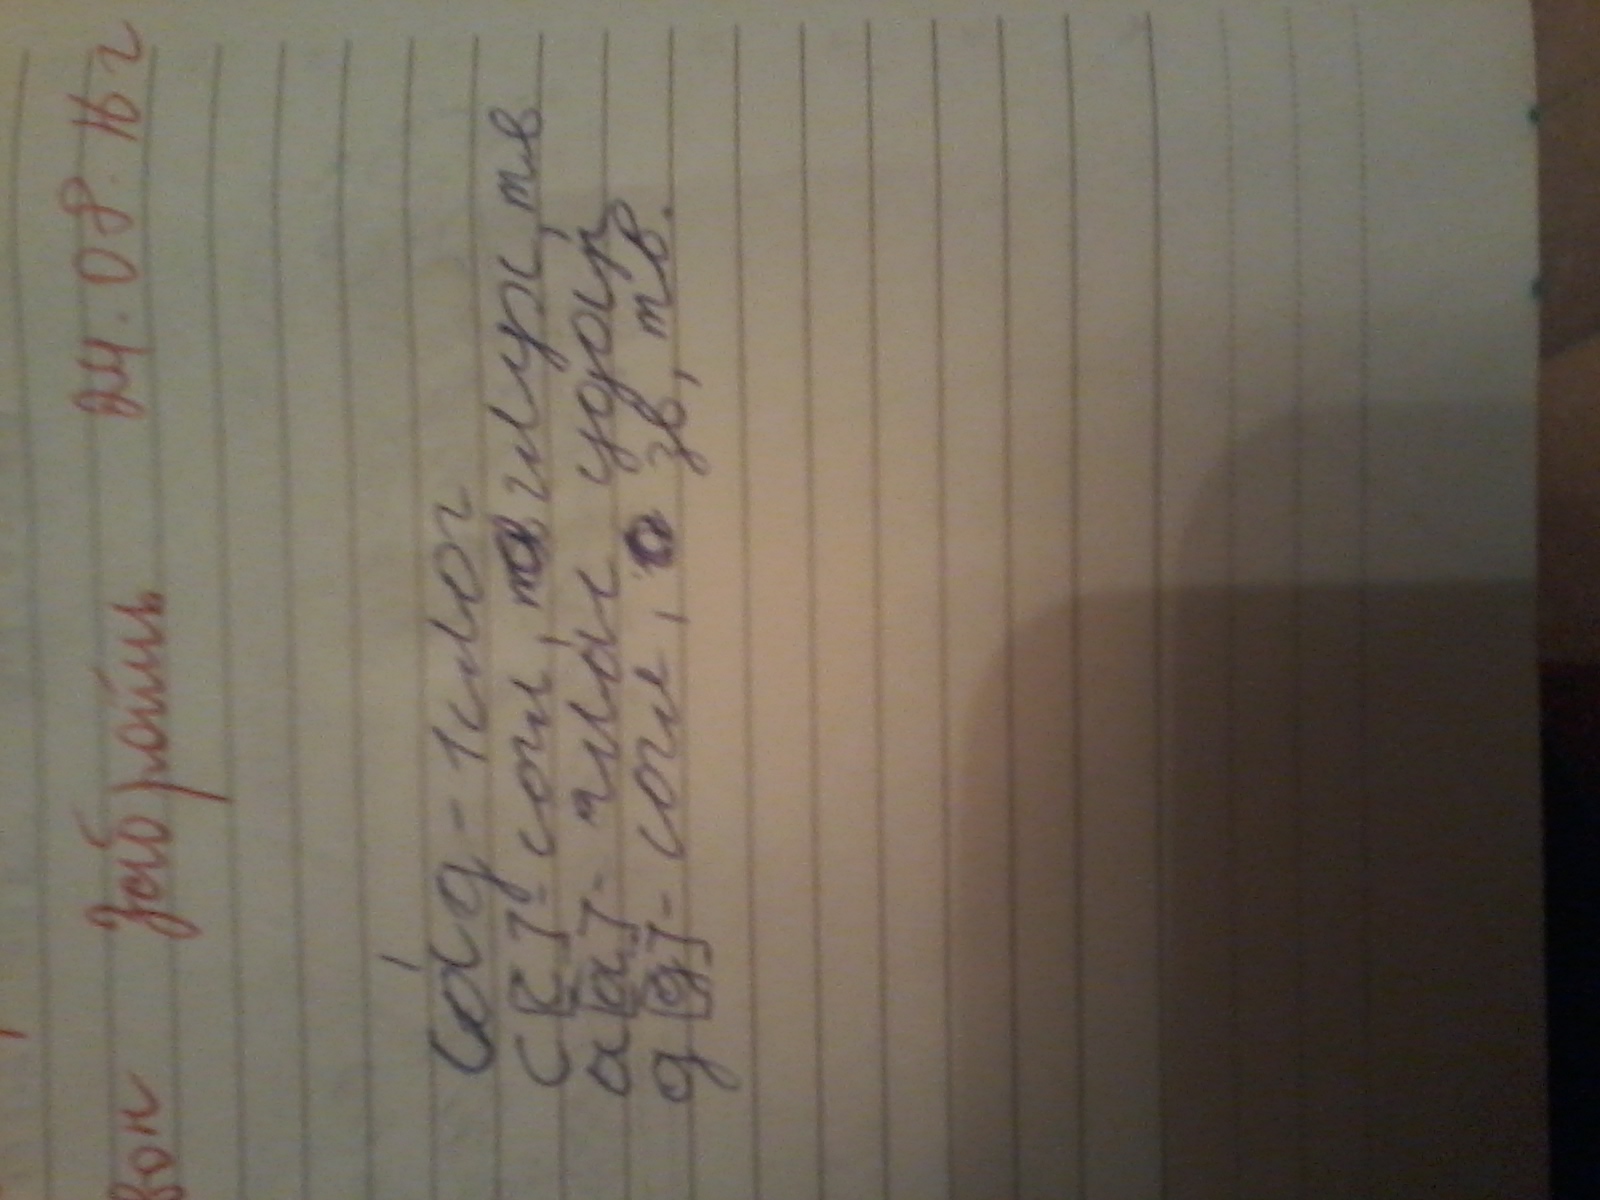 вон Забрать 24.08.16 г
Са́д - 1 слог
с [с] - согл, глух, тв
а [а] - глас удар
д [д] - согл, зв, тв.